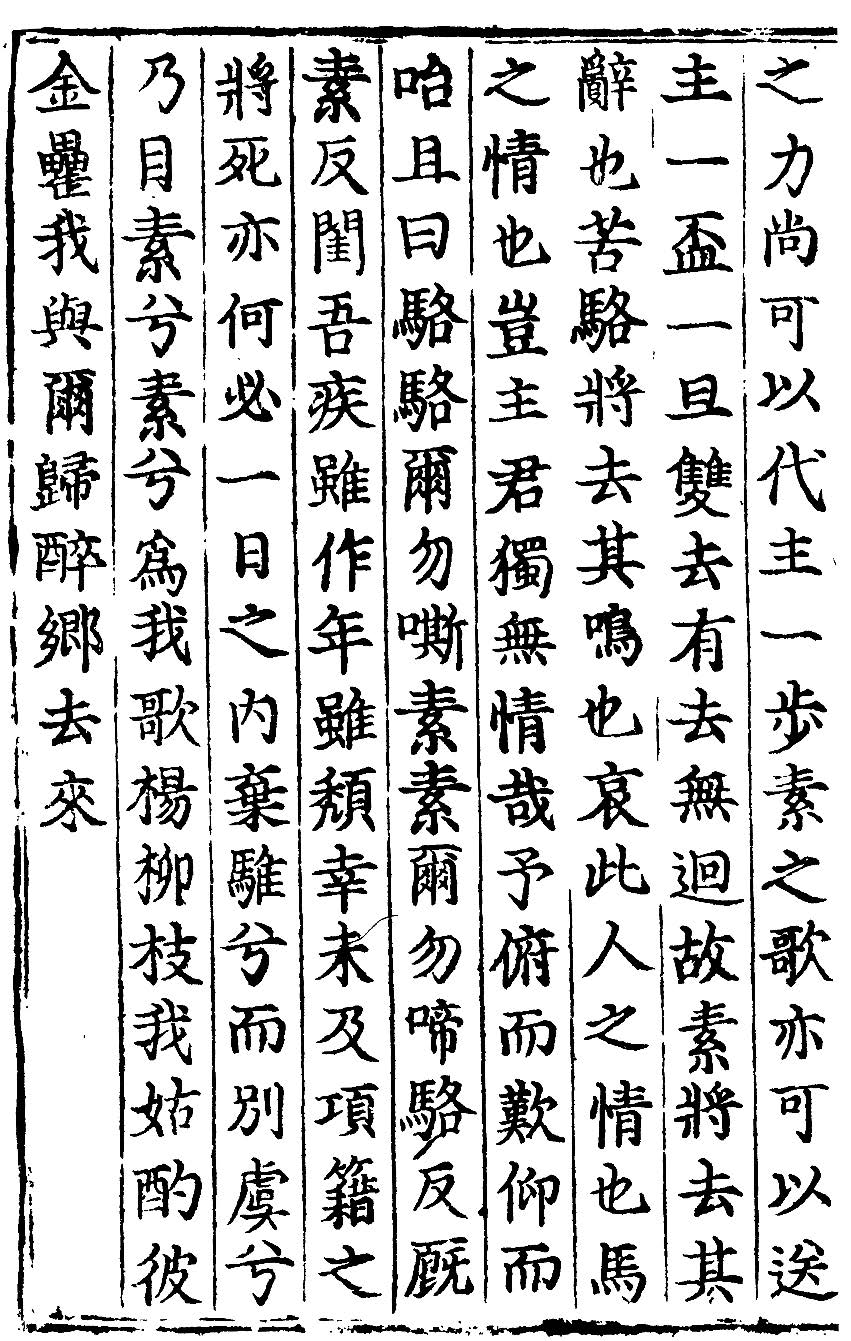 之力尚可以代主一歩素之歌亦可以送
主一盃一旦雙去有去無迴故素將去其
辭也苦駱將去其鳴也哀此人之情也馬
之情也豈主君獨無情哉予俯而歎仰而
咍且曰駱駱爾勿嘶素素爾勿啼駱反廐
素反閨吾疾雖作年雖頽幸未及項籍之
將死亦何必一日之内棄騅兮而別虞兮
乃目素兮素兮爲我歌楊柳枝我姑酌彼
金罍我與爾歸醉鄉去來